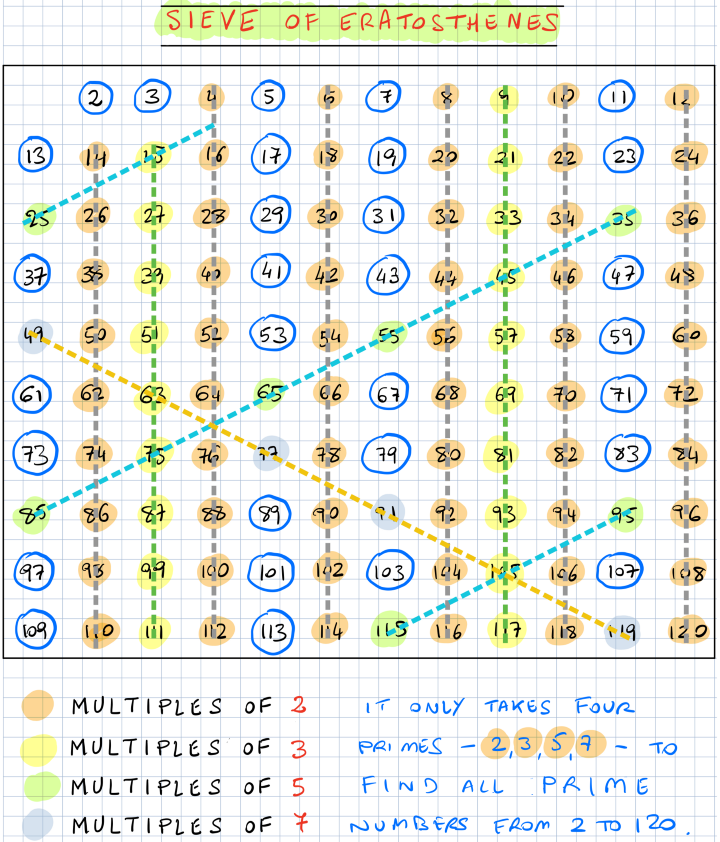 SIEVE OF ERATOSTHENES
2 3 4 5 6 7 8 9 10 11 12
13 14 15 16 17 18 19 20 21 22 23 24
25 26 27 28 29 30 31 32 33 34 35 36
37 38 39 40 41 42 43 44 45 46 47 48
49 50 51 52 53 54 55 56 57 58 59 60
61 62 63 64 65 66 67 68 69 70 71 72
73 74 75 76 77 78 79 80 81 82 83 84
85 86 87 88 89 90 91 92 93 94 95 96
97 98 99 100 101 102 103 104 105 106 107 108
109 110 111 112 113 114 115 116 117 118 119 120
MULTIPLES OF 2
MULTIPLES OF 3
MULTIPLES OF 5
MULTIPLES OF 7
IT ONLY TAKES FOUR
PRIMES - 2, 3, 5, 7 - TO
FIND ALL PRIME
NUMBERS FROM 2 TO 120.